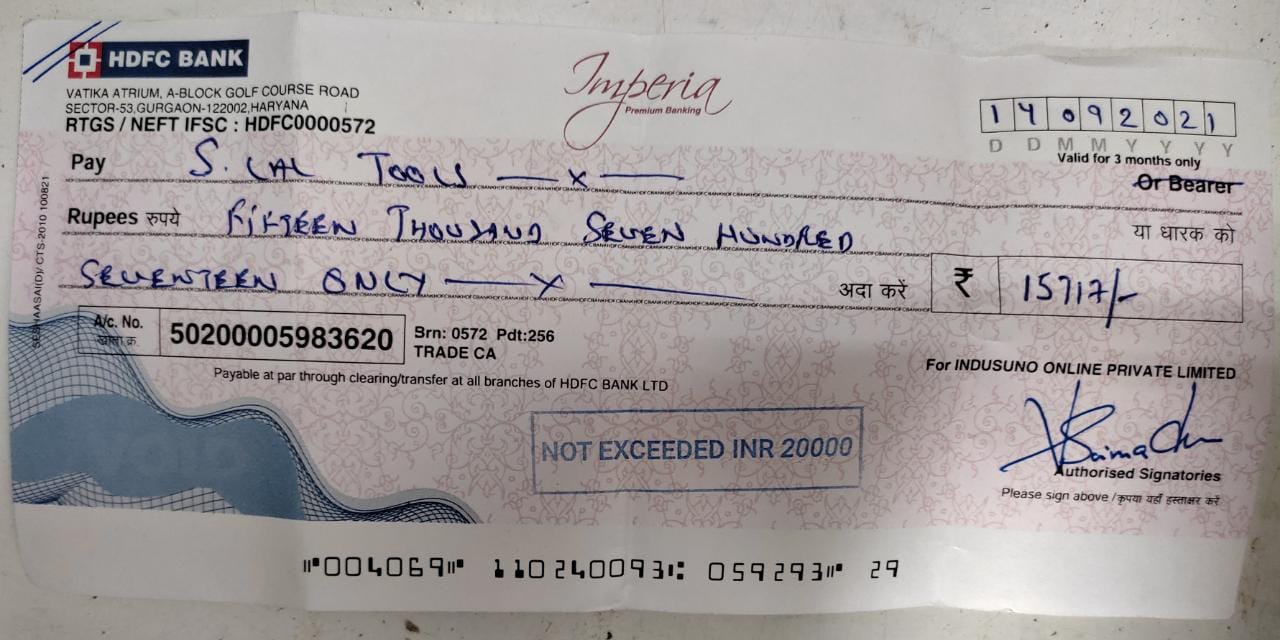 HDFC BANK
VATIKA ATRIUM, A-BLOCK GOLF COURSE ROAD
SECTOR-53,GURGAON-122002,HARYANA
RTGS / NEFT IFSC : HDFC0000572
Imperia
Premium Banking
1 4 0 9 2 0 2 1
D D M M Y Y Y Y
Valid for 3 months only
Pay S. LAL TOOLS —x—
Or Bearer
Rupees रुपये FIFTEEN THOUSAND SEVEN HUNDRED या धारक को
SEVENTEEN ONLY —x— अदा करें ₹ 15717/-
A/c. No. 50200005983620 Brn: 0572 Pdt:256
खाता क्र. TRADE CA
Payable at par through clearing/transfer at all branches of HDFC BANK LTD
For INDUSUNO ONLINE PRIVATE LIMITED
NOT EXCEEDED INR 20000
Authorised Signatories
Please sign above /कृपया यहाँ हस्ताक्षर करें
VOID
CTS-2010 100821
⑈004069⑈ 110240093⑆ 059293⑈ 29